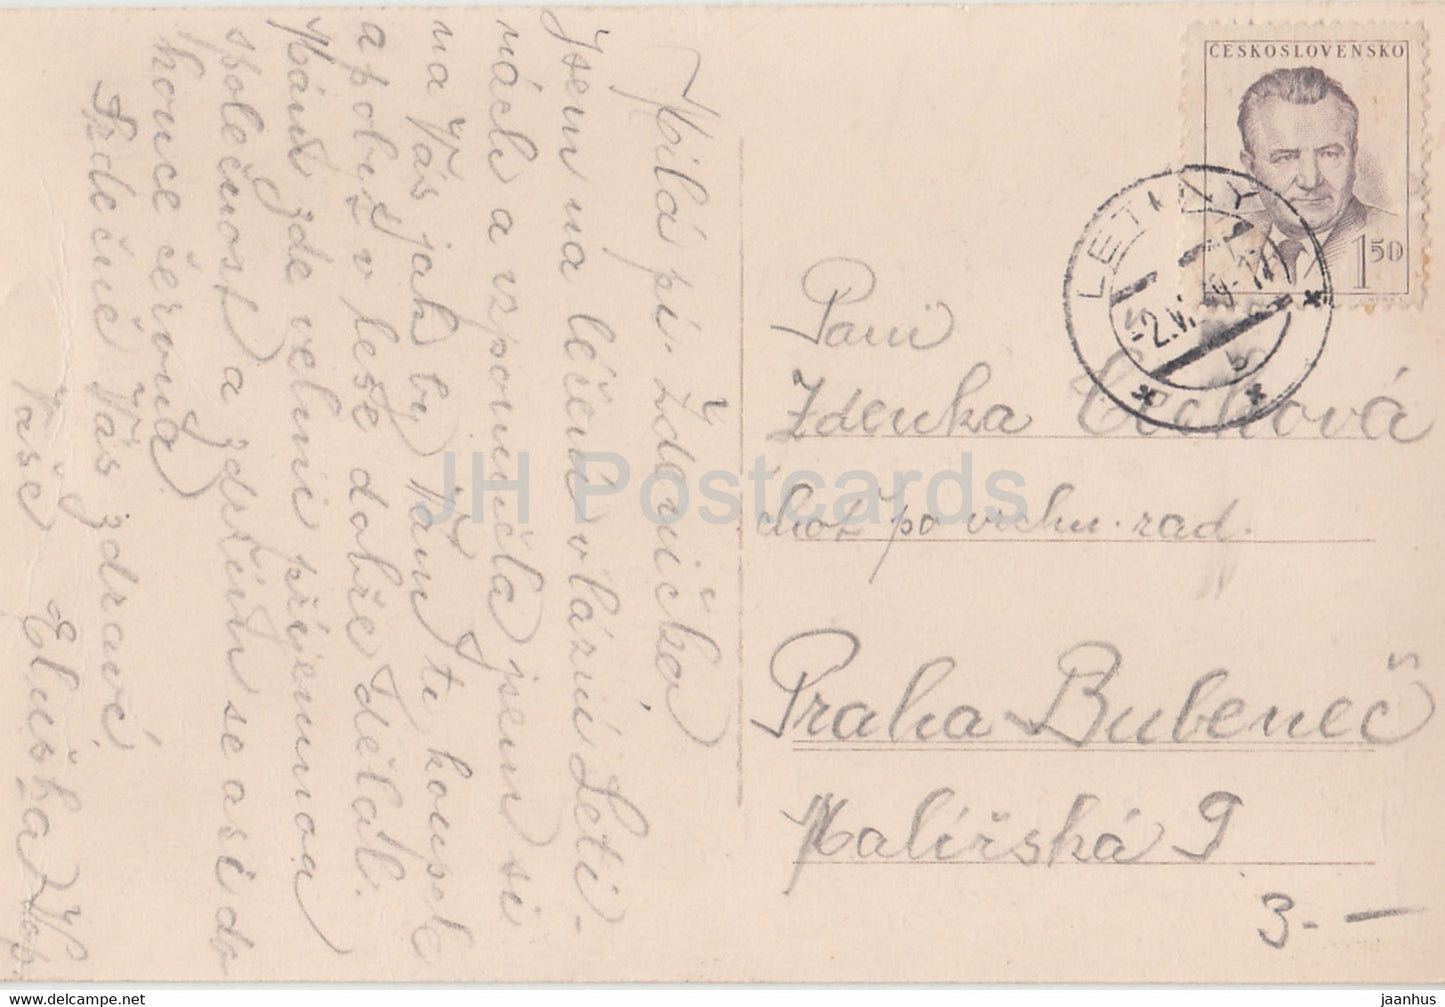 Milá pí. Zdenička
Jsem na léčení v lázní Leti-
nách a vzpomněla jsem si
na Vás jak by Vám ta kousek
a pobyt v lese dobře dělal.
Mám zde velmi příjemnou
společnost a zdržím se asi do
konce června.
Srdečně Vás zdraví
Vaše Eliška
ČESKOSLOVENSKO
1 50
LETINY
-2.VI.
b
Paní
Zdenka Čechová
choť po vrchn. rad.
Praha Bubeneč
Malířská 9
3.-
JH Postcards
www.delcampe.net
jaanhus